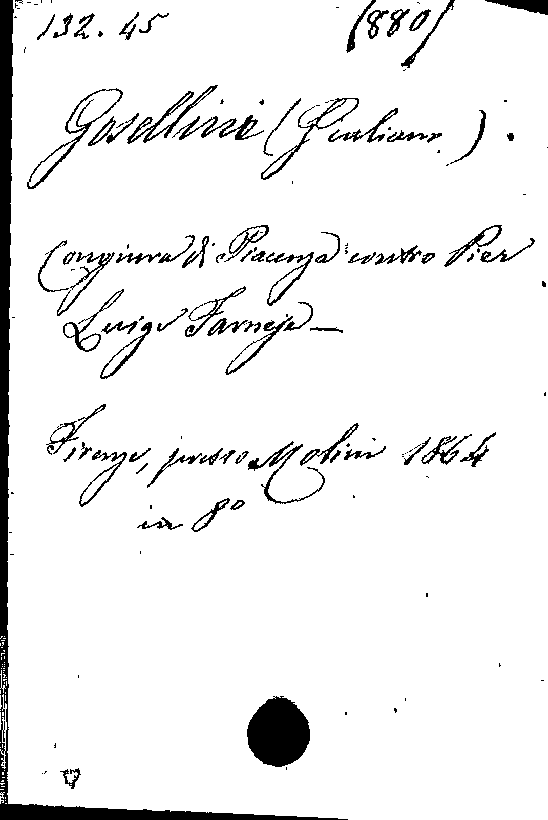 132. 45 (880)
Gosellini (Giuliano).
Congiura di Piacenza contro Pier
Luigi Farnese —
Firenze, presso Molini 1864
in 8º